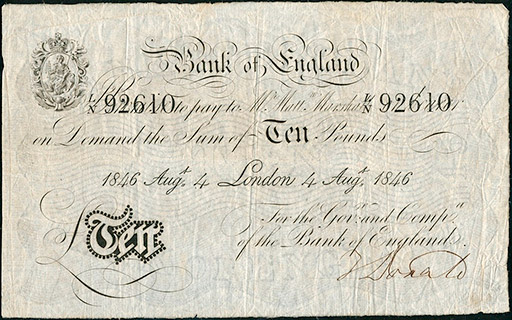 Bank of England
L/N 92610 to pay to Mr. Matt.w Marshall L/N 92610
on Demand the Sum of Ten Pounds
1846 Aug.t 4 London 4 Aug.t 1846
For the Gov.r and Comp.a
of the Bank of England.
£ Ten